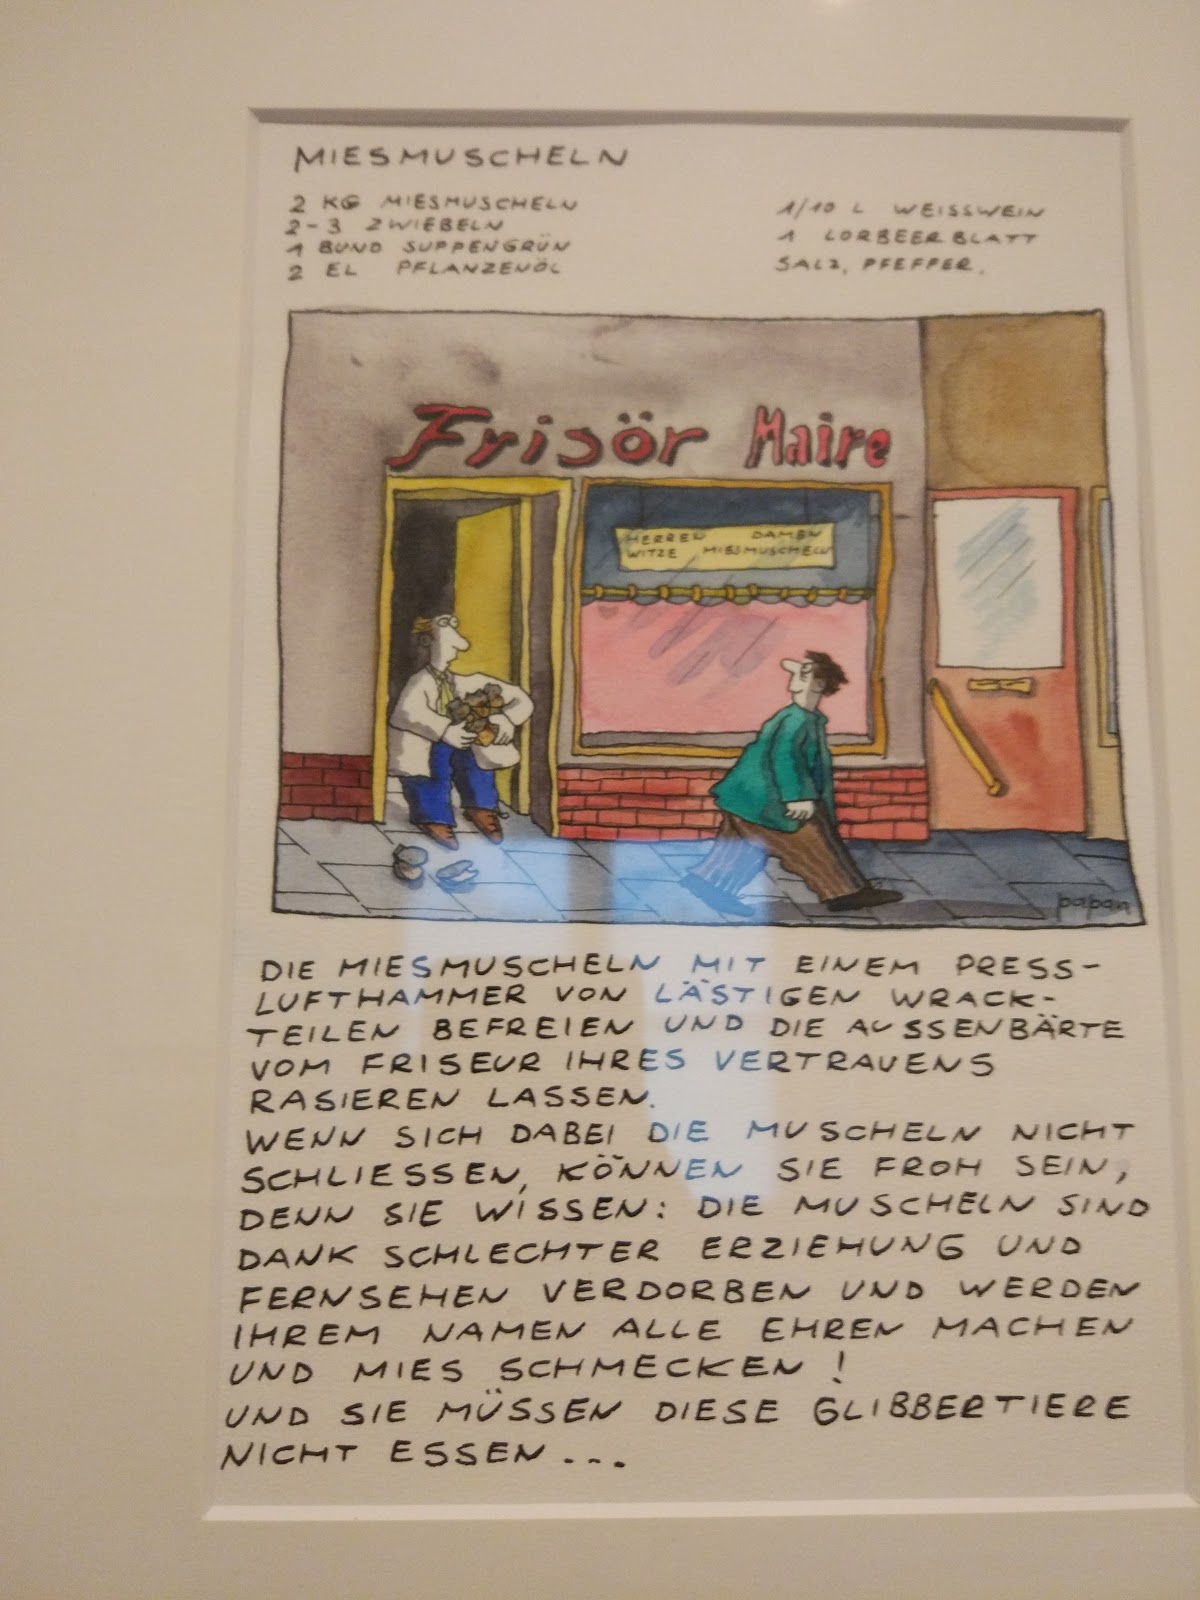 MIESMUSCHELN
2 KG MIESMUSCHELN
2-3 ZWIEBELN
1 BUND SUPPENGRÜN
2 EL PFLANZENÖL
1/10 L WEISSWEIN
1 LORBEERBLATT
SALZ, PFEFFER.
Frisör Maire
HERREN DAMEN
WITZE MIESMUSCHELN
papan
DIE MIESMUSCHELN MIT EINEM PRESS-
LUFTHAMMER VON LÄSTIGEN WRACK-
TEILEN BEFREIEN UND DIE AUSSENBÄRTE
VOM FRISEUR IHRES VERTRAUENS
RASIEREN LASSEN.
WENN SICH DABEI DIE MUSCHELN NICHT
SCHLIESSEN, KÖNNEN SIE FROH SEIN,
DENN SIE WISSEN: DIE MUSCHELN SIND
DANK SCHLECHTER ERZIEHUNG UND
FERNSEHEN VERDORBEN UND WERDEN
IHREM NAMEN ALLE EHREN MACHEN
UND MIES SCHMECKEN!
UND SIE MÜSSEN DIESE GLIBBERTIERE
NICHT ESSEN...